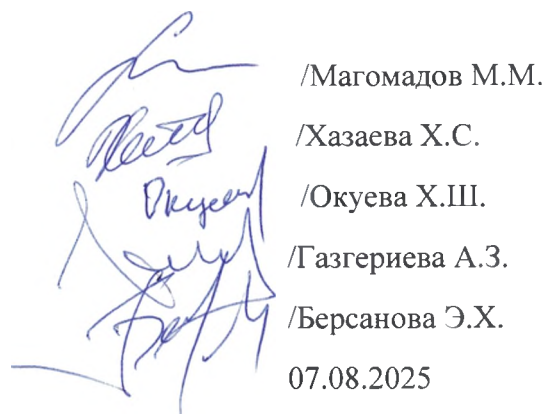 /Магомадов М.М.
/Хазаева Х.С.
Окуева /Окуева Х.Ш.
/Газгериева А.З.
/Берсанова Э.Х.
07.08.2025